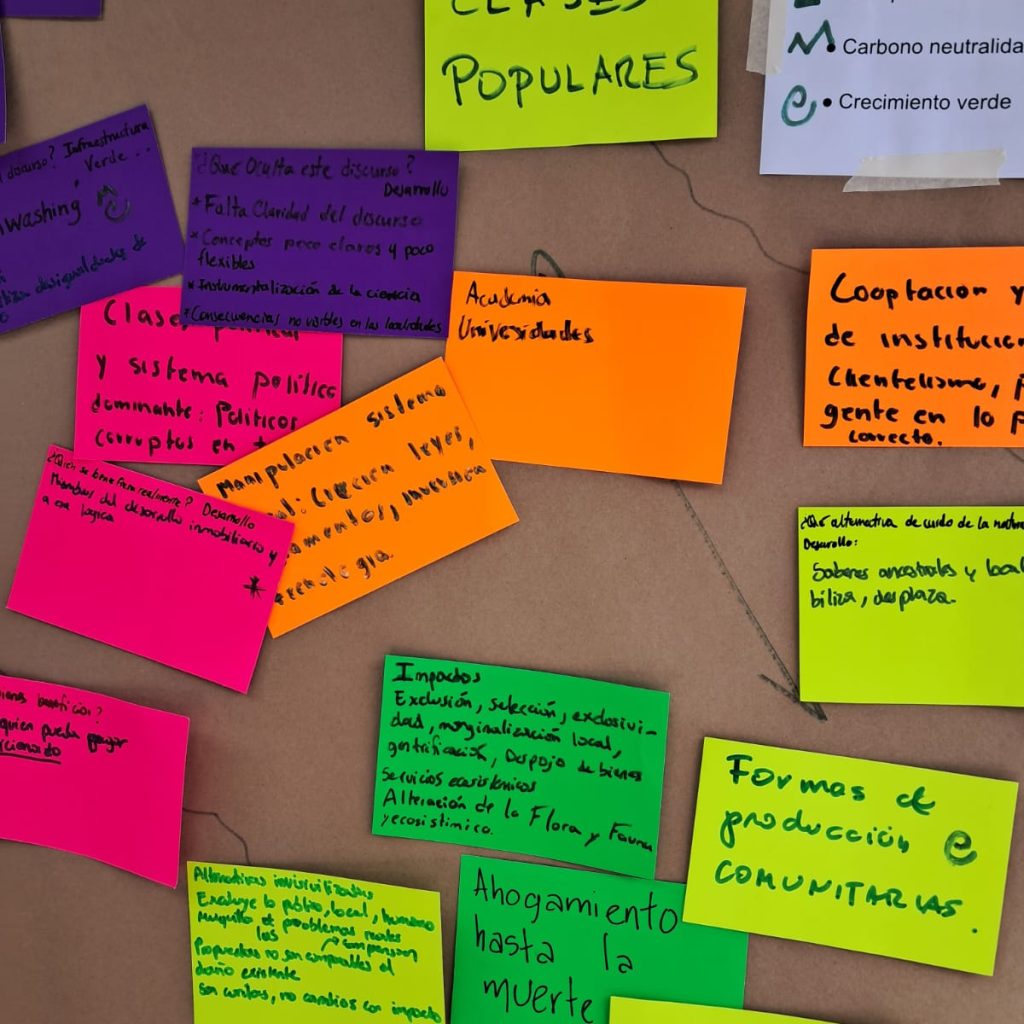 CLASES
POPULARES
Carbono neutralida
e • Crecimiento verde
discurso? Infraestructura
Verde..
washing
desigualdades de
¿Que Oculta este discurso?
Desarrollo
* Falta Claridad del discurso
* Conceptos poco claros y poco
flexibles
* Instrumentalización de la ciencia
* Consecuencias no visibles en las localidades
Academia
Universidades
Cooptacion y
de institucion
Clientelismo, p
gente en lo p
correcto.
Clase
y sistema político
dominante: Políticos
corruptos en
Manipulación sistema
Creación leyes,
inversión
¿Quién se beneficia realmente? Desarrollo
Miembros del desarrollo inmobiliario y
a esa lógica
*
¿Qué alternativa de cuido de la natura
Desarrollo:
Saberes ancestrales y local
biliza, desplaza.
beneficios?
quien pueda pagar
Impactos
Exclusión, selección, exclusivi-
dad, marginalización local,
gentrificación, Despojo de bienes
Servicios ecosistémicos
Alteración de la Flora y Fauna
y ecosistémico.
Formas de
producción e
COMUNITARIAS.
Alternativas invisivilizadas
Excluye lo público, local, humano
maquilla de problemas reales
las compensan
Propuestas no son comparables el
daño existente
Son cuotas, no cambios con impacto
Ahogamiento
hasta la
muerte